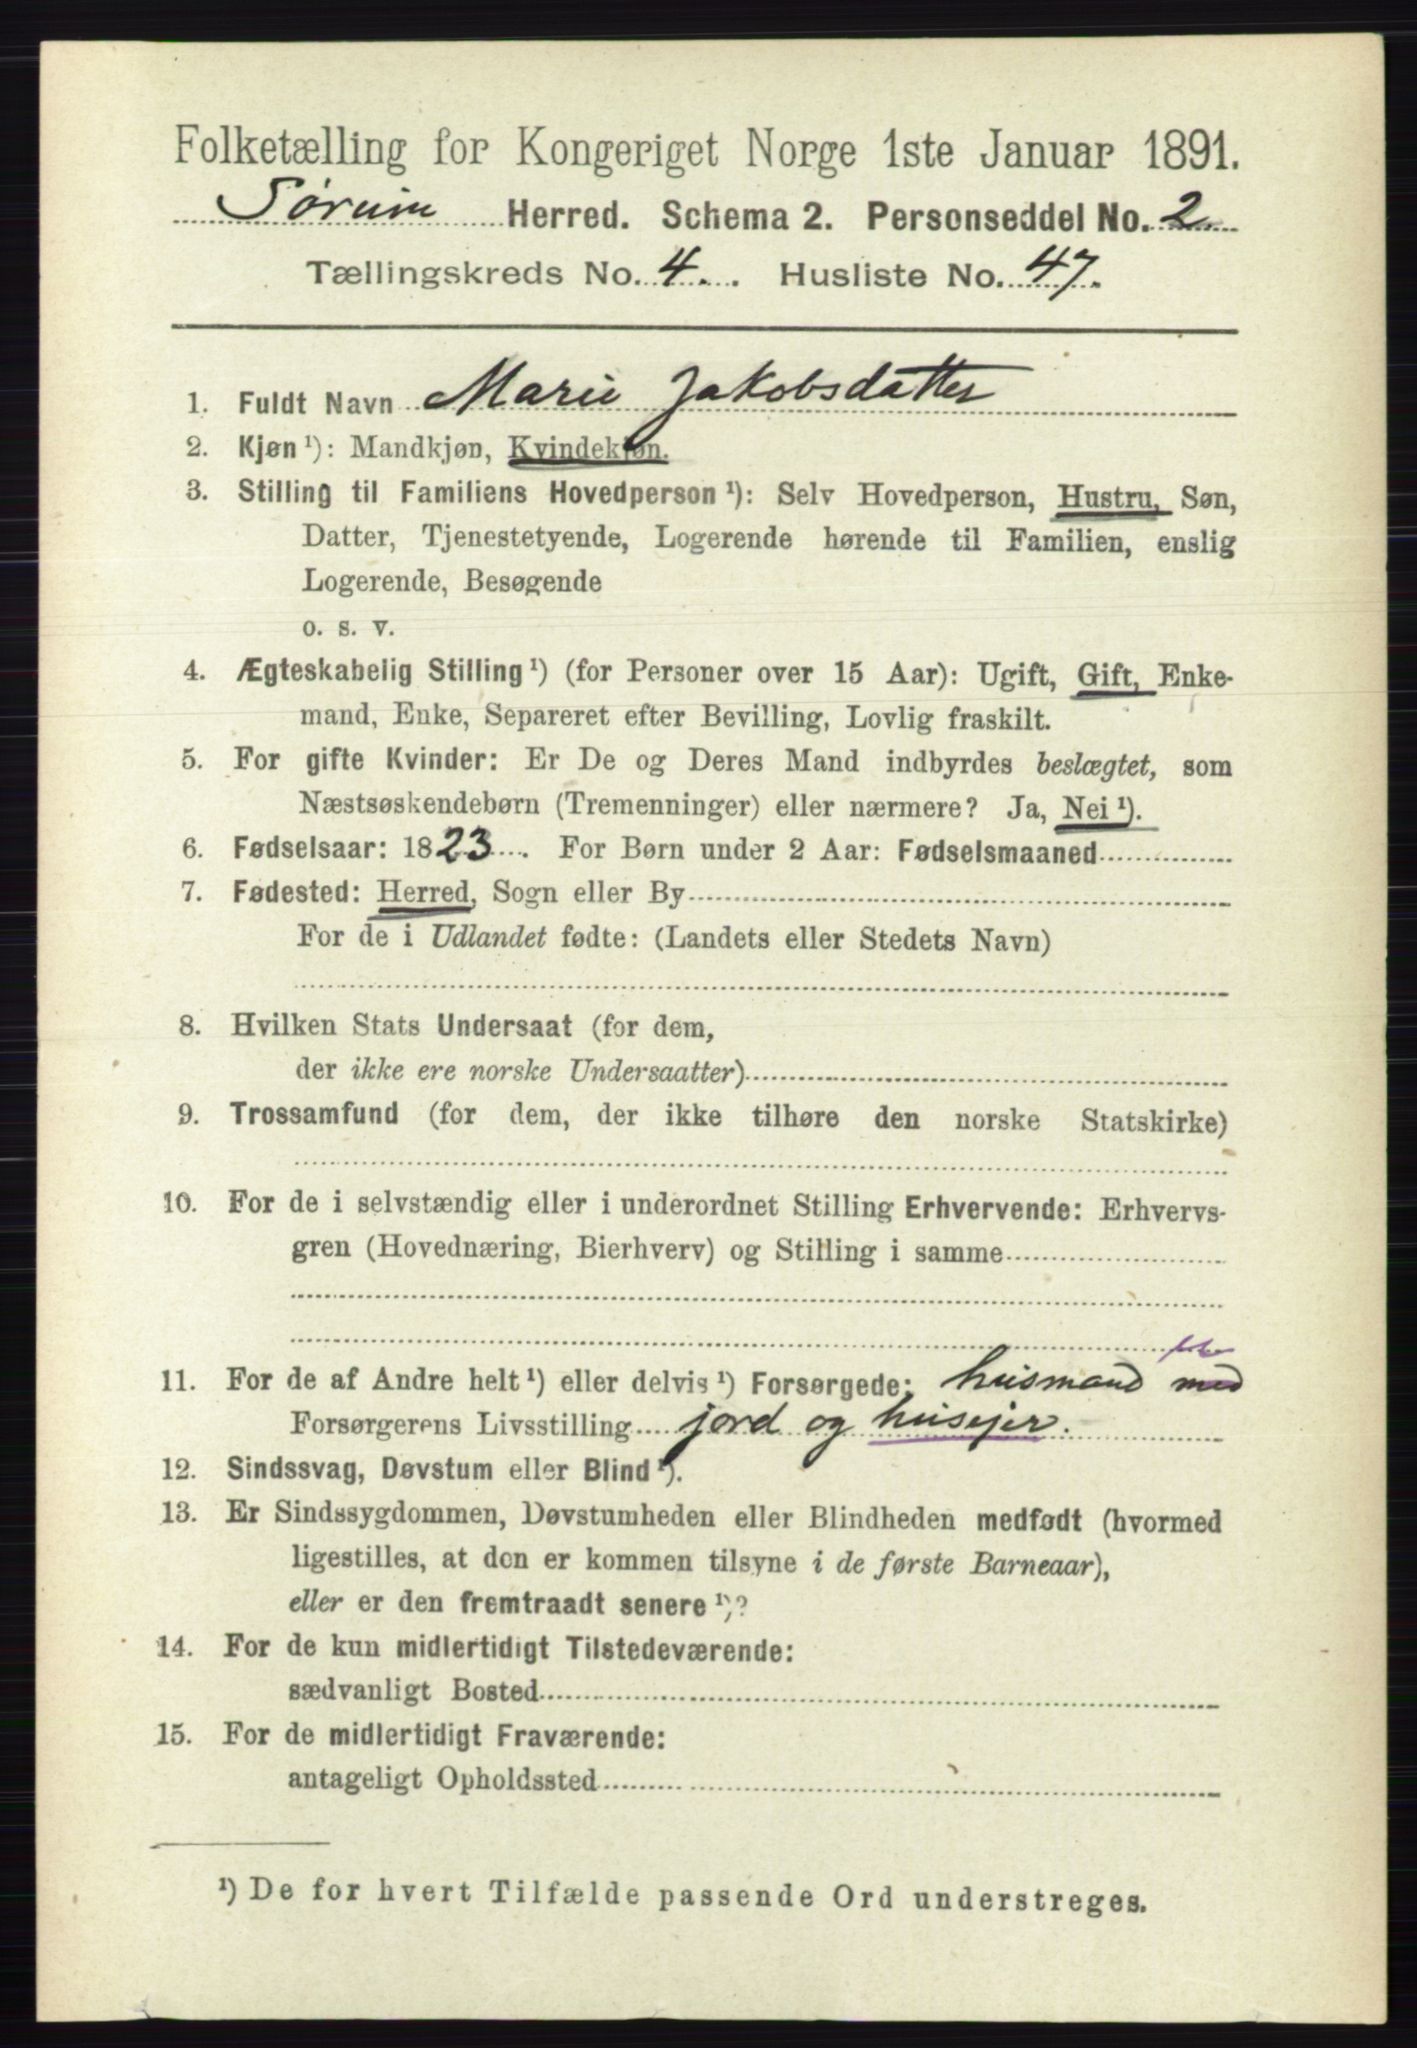 Folketælling for Kongeriget Norge 1ste Januar 1891.
Sørum Herred. Schema 2. Personseddel No. 2.
Tællingskreds No. 4. Husliste No. 47.
1. Fuldt Navn Marie Jakobsdatter
2. Kjøn ¹): Mandkjøn, Kvindekjøn.
3. Stilling til Familiens Hovedperson ¹): Selv Hovedperson, Hustru, Søn,
Datter, Tjenestetyende, Logerende hørende til Familien, enslig
Logerende, Besøgende
o. s. v.
4. Ægteskabelig Stilling ¹) (for Personer over 15 Aar): Ugift, Gift, Enke-
mand, Enke, Separeret efter Bevilling, Lovlig fraskilt.
5. For gifte Kvinder: Er De og Deres Mand indbyrdes beslægtet, som
Næstsøskendebørn (Tremenninger) eller nærmere? Ja, Nei ¹).
6. Fødselsaar: 1823. For Børn under 2 Aar: Fødselsmaaned
7. Fødested: Herred, Sogn eller By
For de i Udlandet fødte: (Landets eller Stedets Navn)
8. Hvilken Stats Undersaat (for dem,
der ikke ere norske Undersaatter)
9. Trossamfund (for dem, der ikke tilhøre den norske Statskirke)
10. For de i selvstændig eller i underordnet Stilling Erhvervende: Erhvervs-
gren (Hovednæring, Bierhverv) og Stilling i samme
11. For de af Andre helt ¹) eller delvis ¹) Forsørgede: husmand med
Forsørgerens Livsstilling jord og husejer.
12. Sindssvag, Døvstum eller Blind ¹).
13. Er Sindssygdommen, Døvstumheden eller Blindheden medfødt (hvormed
ligestilles, at den er kommen tilsyne i de første Barneaar),
eller er den fremtraadt senere ¹)?
14. For de kun midlertidigt Tilstedeværende:
sædvanligt Bosted
15. For de midlertidigt Fraværende:
antageligt Opholdssted
¹) De for hvert Tilfælde passende Ord understreges.